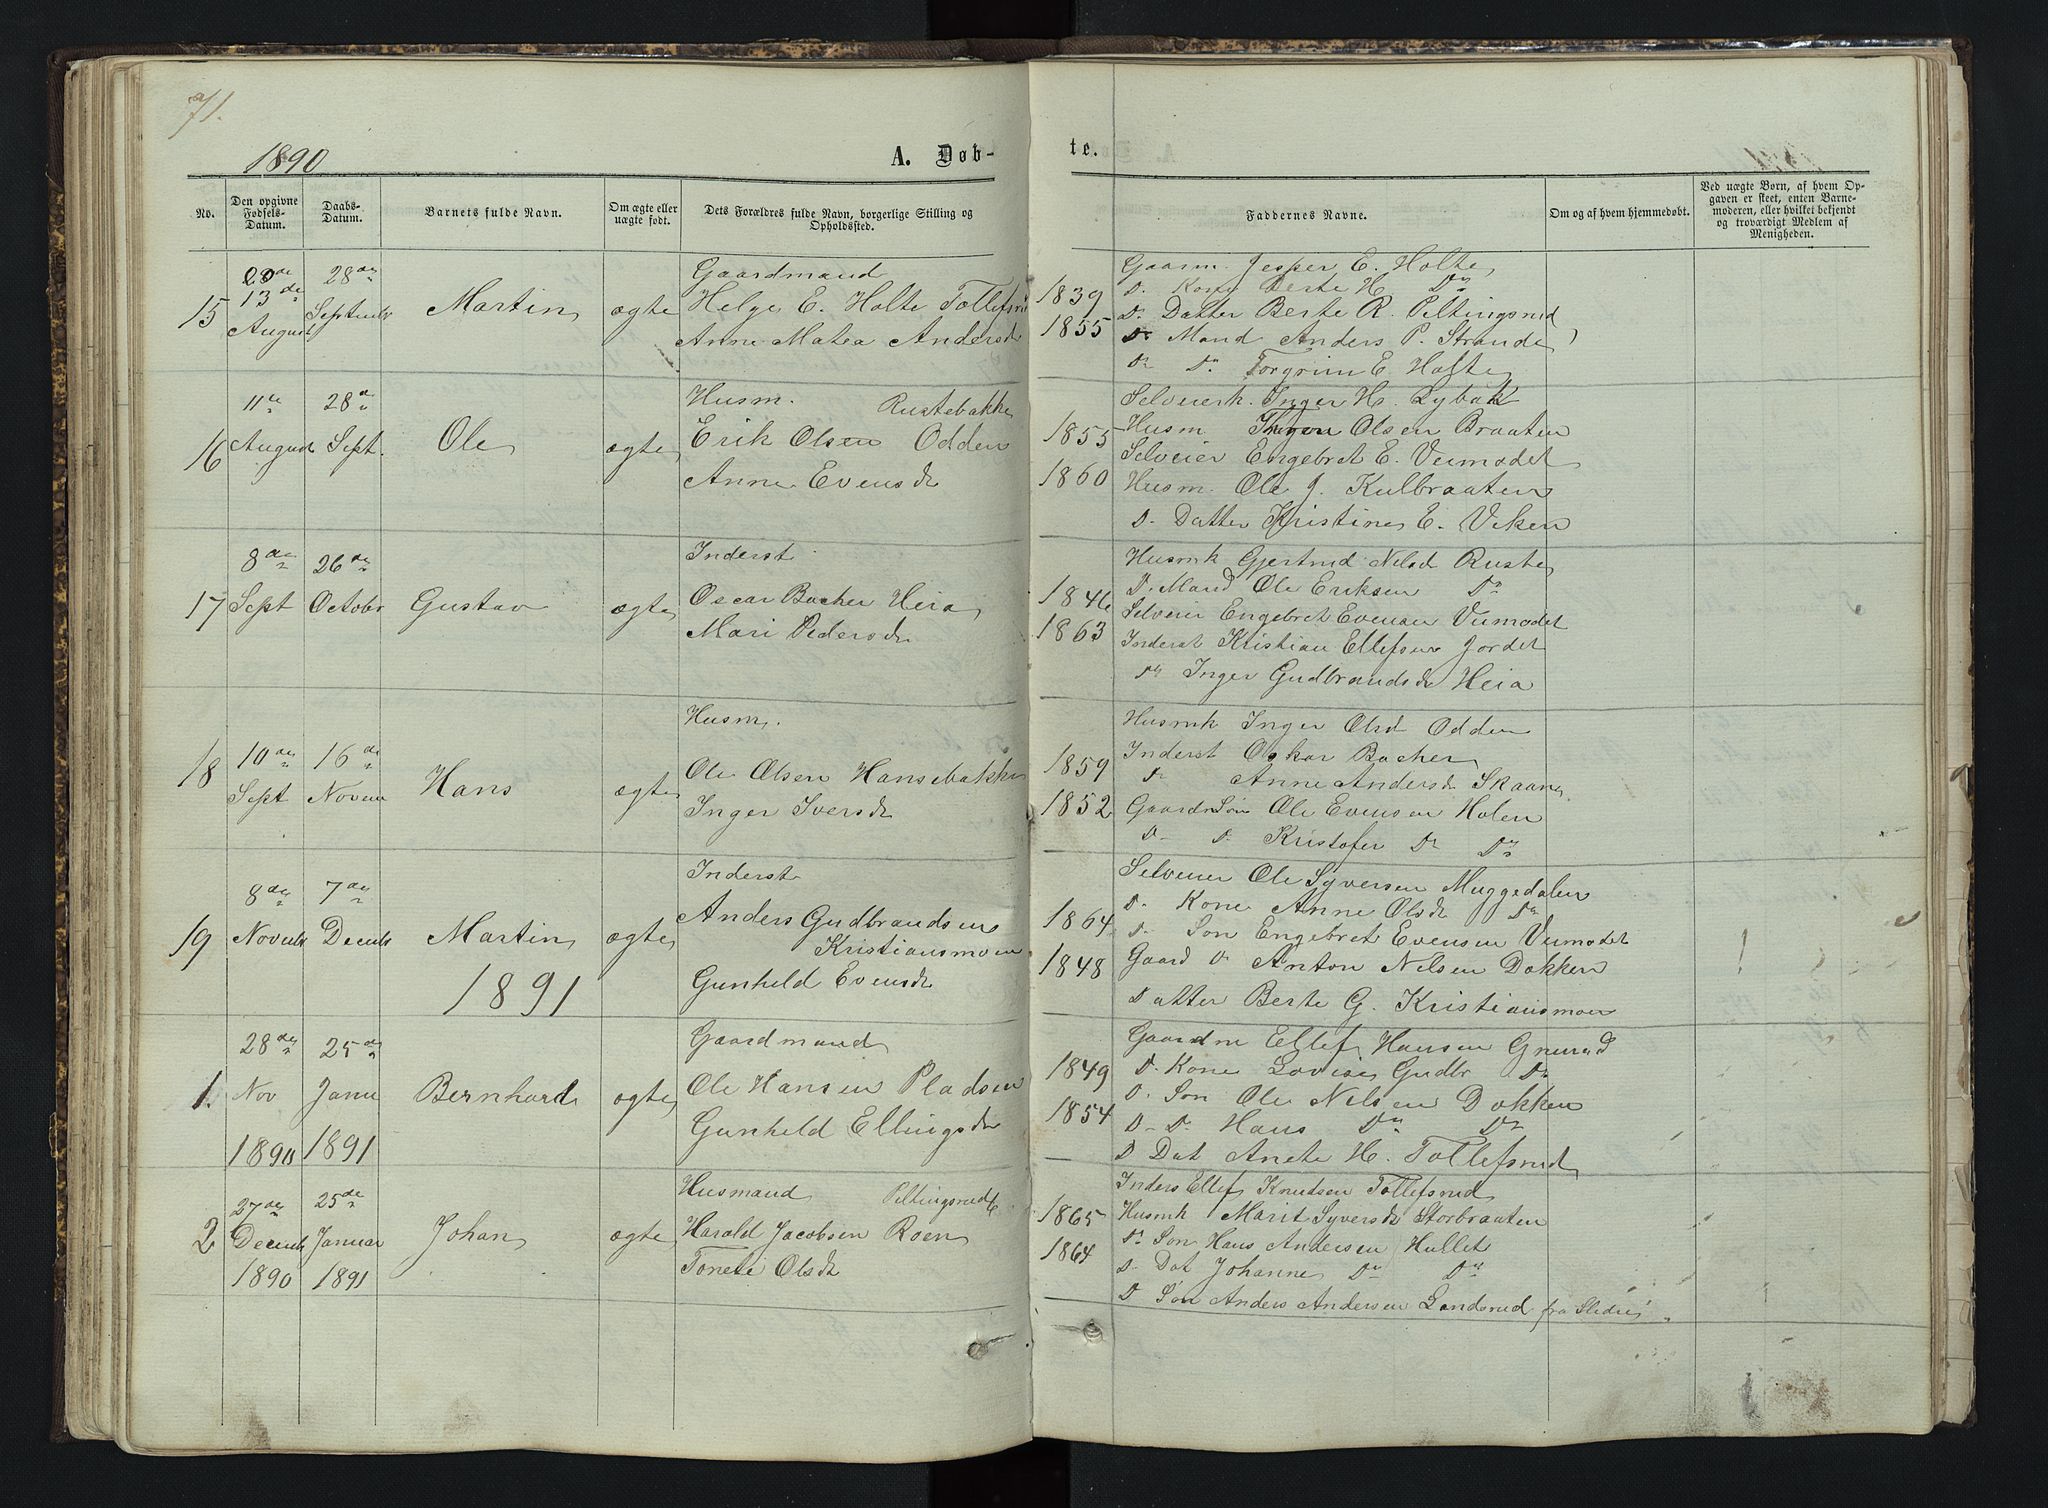 71.
1890
A. Døb-
te.
No.
Den opgivne Fødsels-Datum.
Daabs-Datum.
Barnets fulde Navn.
Om ægte eller uægte født.
Dets Forældres fulde Navn, borgerlige Stilling og Opholdssted.
Faddernes Navne.
Om og af hvem hjemmedøbt.
Ved uægte Børn, af hvem Opgaven er skeet, enten Barnemoderen, eller hvilket bekjendt og troværdigt Medlem af Menigheden.
15
13de August
28de Septembr
Martin
ægte
Gaardmand
Helge E. Holte Tollefsrud
Anne Matea Andersd
1839
1855
Gaarm. Jesper E. Holte
D. Kone Berte H. Do
Do Datter Berte R. Peltingsrud
Do Mand Anders P. Strande
Do Do Torgrim E Holte
16
11te August
28de Sept.
Ole
ægte
Husm. Rustebakke
Erik Olsen Odden
Anne Evensd
1855
1860
Selveierk. Inger H. Lybæk
Husm. Olsen Braaten
Selveier Engebret E. Veimodet
Husm. Ole J. Kulbraaten
D. Datter Kristine E. Viken
17
8de Sept
26de Octobr
Gustav
ægte
Inderst
Oscar Bacher Heia
Mari Pedersd
1846
1863
Husmk Gjertrud Nilsd Ruste
D. Mand Ole Eriksen Do
Selveier Engebret Evensen Veimodet
Inderst Kristian Ellefsen Jordet
Do Inger Gudbrandsd Heia
18
10de Sept
16de Novem
Hans
ægte
Husm.
Ole Olsen Hansebakke
Inger Iversd
1859
1852
Husmk Inger Olsd Odden
Inderst Oskar Bacher
Do Anne Andersd Skaane
Gaardm Søn Ole Evensen Holen
D- D- Kristofer Do Do
19
8de Novemb
7de Decemb
Martin
ægte
Inderst
Anders Gudbrandsen
Kristiansmoen
Gunhild Evensd
1864
1848
Selveier Ole Syversen Muggedalen
D- Kone Anne Olsd Do
D- Søn Engebret Evensen Veimodet
Gaard D Anton Nilsen Dokken
Datter Berte G. Kristiansmoen
1891
1.
28de Nov 1890
25de Janu 1891
Bernhard
ægte
Gaardmand
Ole Hansen Pladsen
Gunhild Ellingsd
1849
1854
Gaardm Ellef Hansen
D. Kone Lovise Gudbr Do
D. Søn Ole Nilsen Dokken
D- D- Hans Do Do
D Dat Anete H. Tollefsrud
2
27de Decemb 1890
25de Januar 1891
Johan
ægte
Husmand Peltingsrude
Harald Jacobsen Roen
Tonete Olsd
1865
1864
Inders Ellef Knudsen Tollefsrud
Husmk Marit Syversd Storbraaten
Do Søn Hans Andersen Hullet
D- Dat Johanne Do Do
D Søn Anders Andersen Landsrud fra Slidre